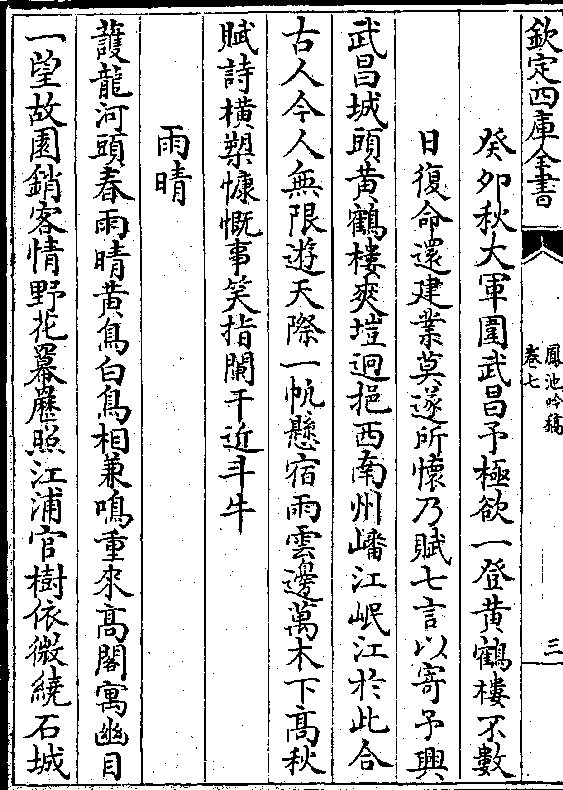 欽定四庫全書
鳳池吟稿
卷七
三
癸卯秋大軍圍武昌予極欲一登黄鶴樓不數
日復命還建業莫遂所懷乃賦七言以寄予興
武昌城頭黄鶴樓爽塏迥挹西南州嶓江岷江於此合
古人今人無限遊天際一帆懸宿雨雲邊萬木下髙秋
賦詩横槊慷慨事笑指闌干近斗牛
雨晴
䕶龍河頭春雨晴黄鳥白鳥相兼鳴重來髙閣寓幽目
一望故園銷客情野花羃䍥照江浦官樹依微繞石城